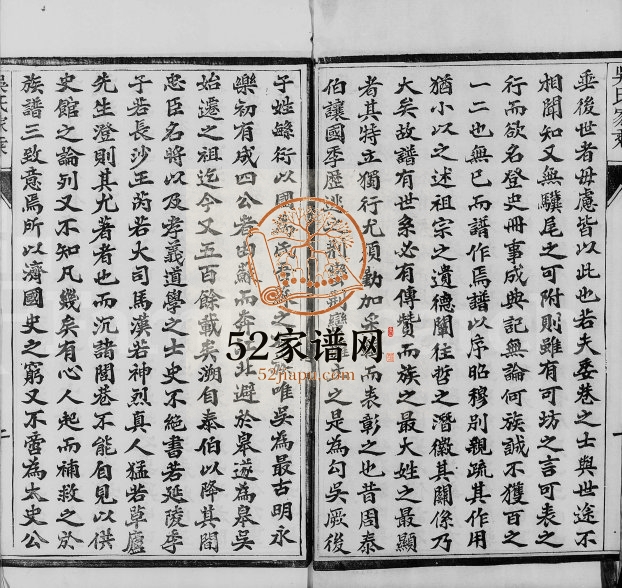 吳氏家乘
垂後世者毋慮皆以此也若夫委巷之士與世途不
相聞知又無驥尾之可附則雖有可坊之言可表之
行而欲名登史冊事成典記無論何族誠不獲百之
一二也無已而譜作焉譜以序昭穆別親疏其作用
猶小以之述祖宗之遺德闡往哲之潛徽其關係乃
大矣故譜有世系必有傳贊而族之最大姓之最顯
者其特立獨行尤須勤加采而表彰之也昔周泰
伯讓國季歷逃之荊蠻之是為勾吳厥後
子姓緜衍以國為氏之唯吳為最古明永
樂初有成四公者由蘇而奔江北避於皋遂為皋吳
始遷之祖迄今又五百餘載矣溯自泰伯以降其間
忠臣名將以及孝義道學之士史不絕書若延陵季
子若長沙王芮若大司馬漢若神烈真人猛若草廬
先生澄則其尤著者也而沉諸閭巷不能自見以供
史館之論列又不知凡幾矣有心人起而補救之於
族譜三致意焉所以濟國史之窮又不啻為太史公
吳氏家乘
52家谱网
52jiapu.com